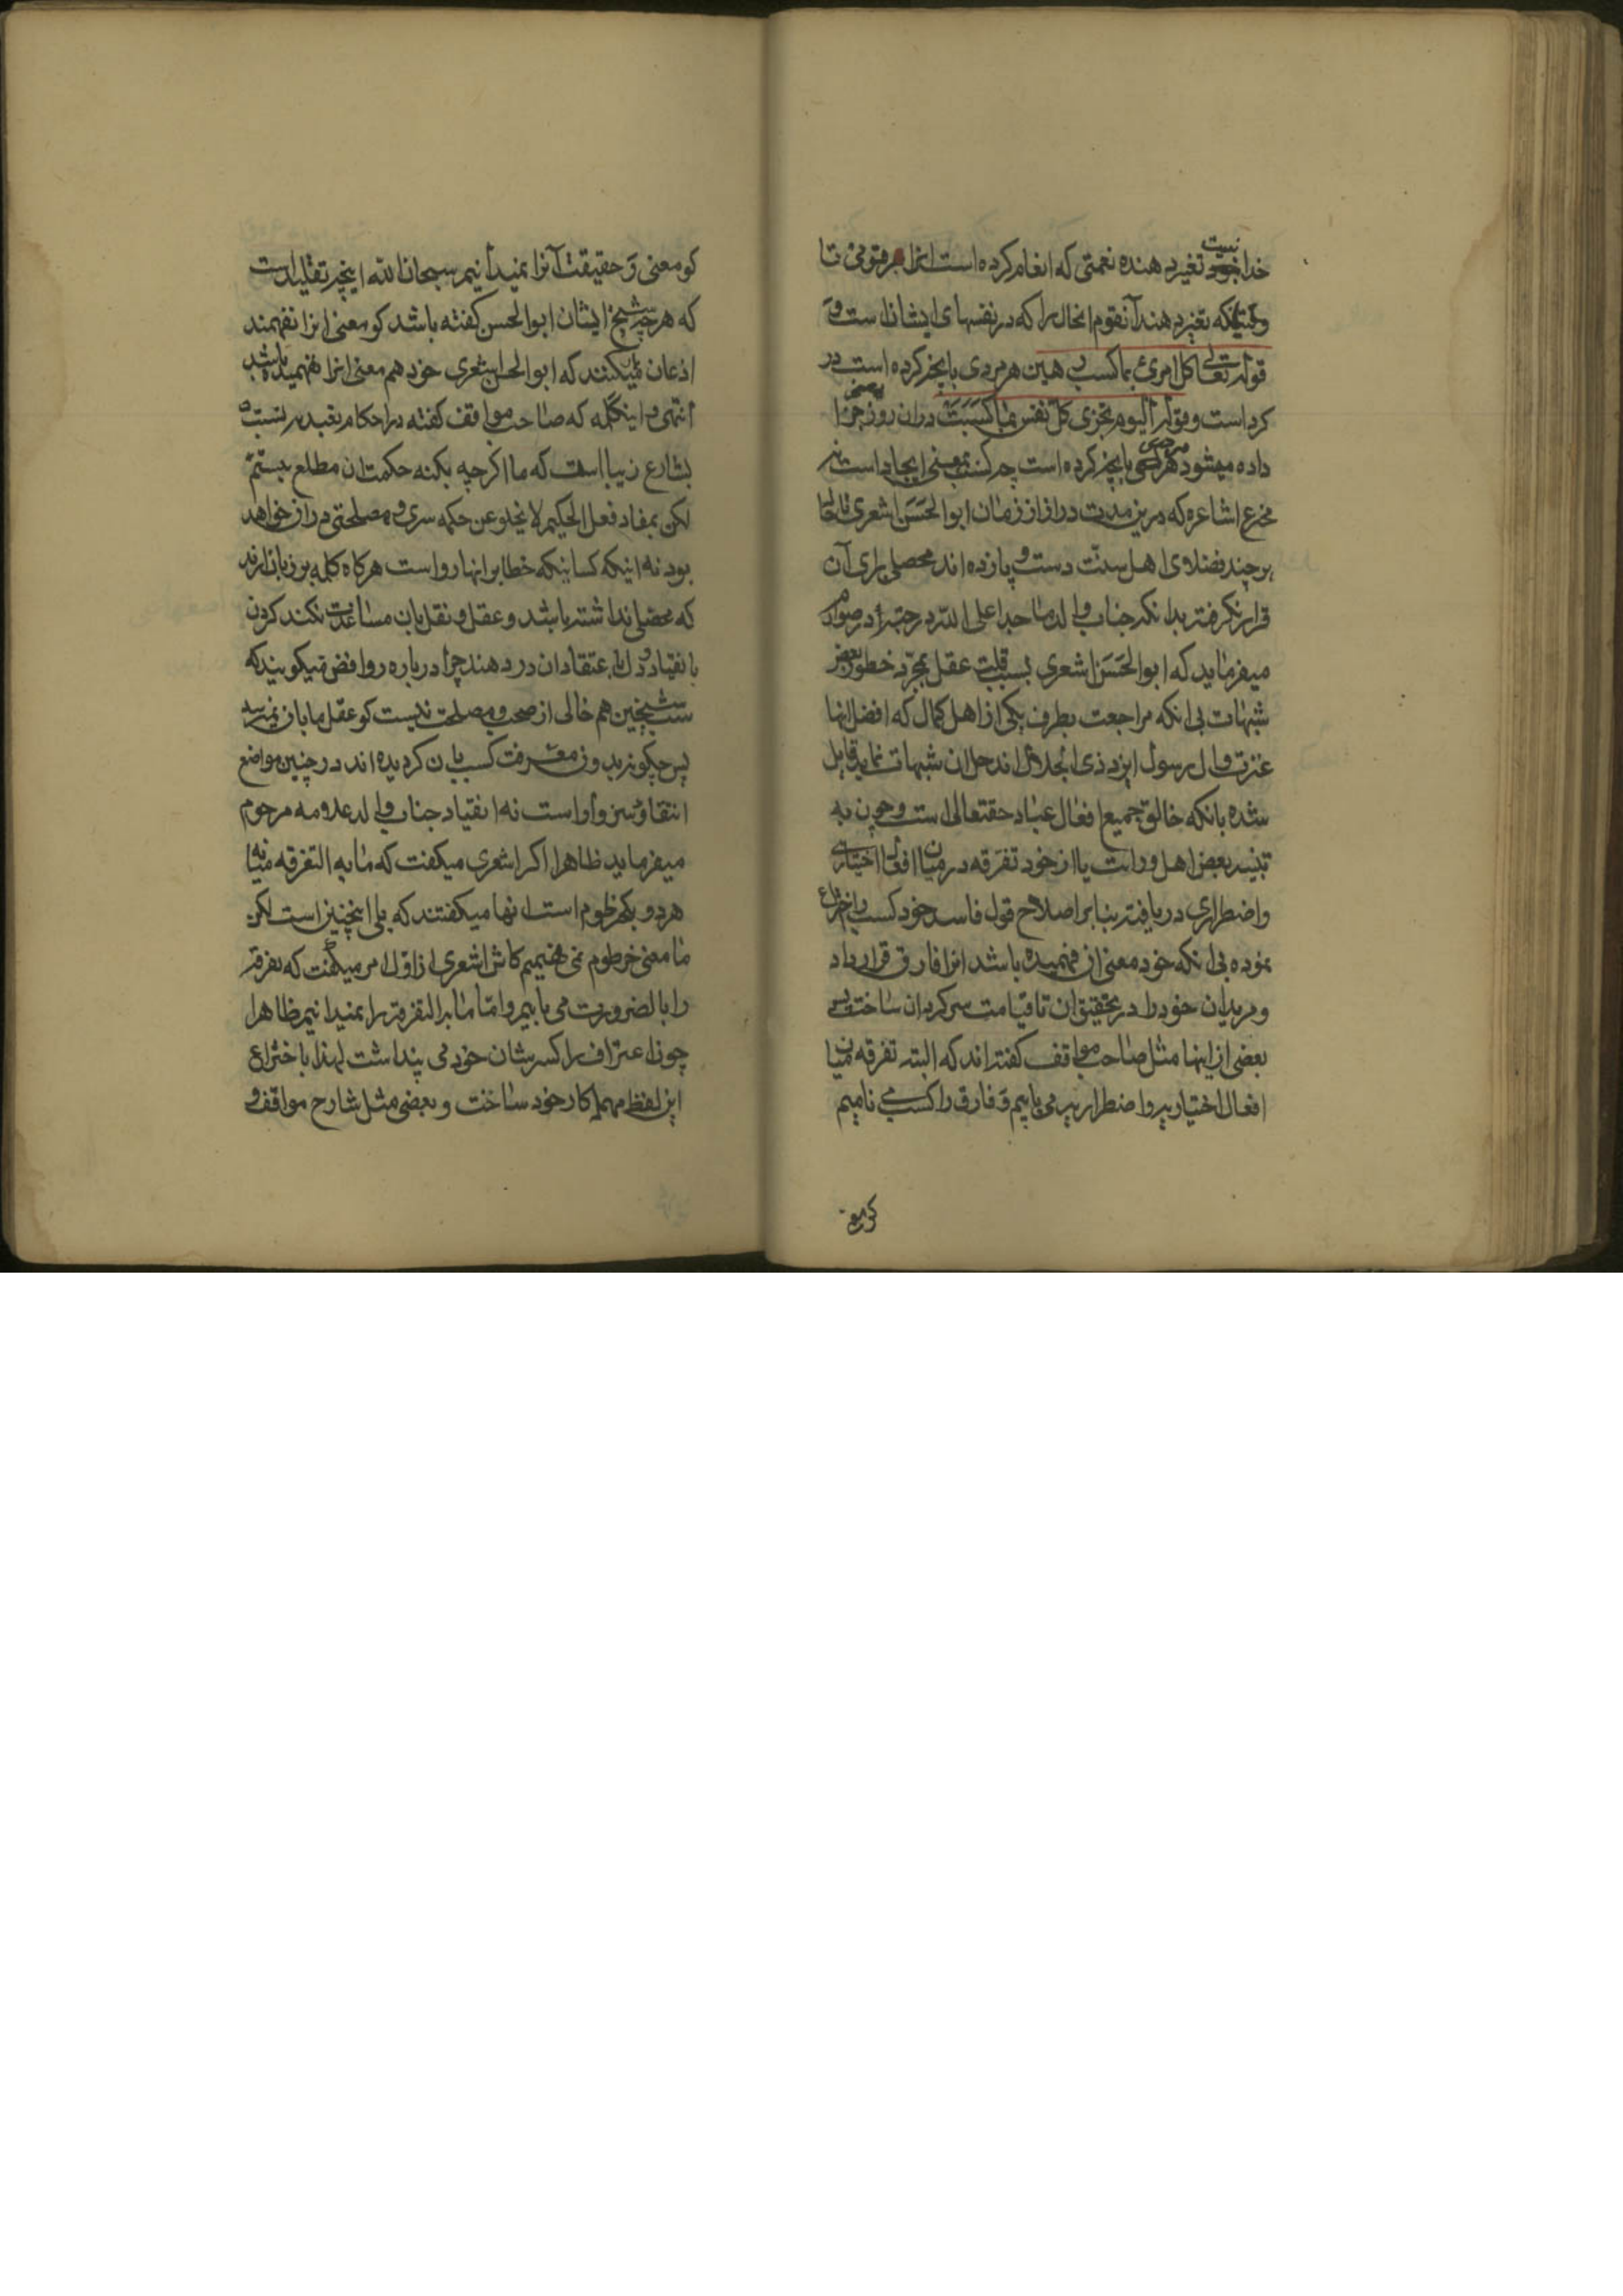 خدا نیست تغیر دهنده نعمتی که انعام کرده است انرا بر قومی تا
وقتیکه تغیر دهند آنقوم انحال را که در نفسهای ایشان است و
قوله تعالی کل امرئ بما کسب رهین هر مردی بانچه کرده است در
کرد است وقوله الیوم تجزی کل نفس بما کسبت دران روز جزا
داده میشود هر کسی بانچه کرده است چه کسب بمعنی ایجاد است نه
مخترع اشاعره که درین مدت دراز از زمان ابوالحسن اشعری تا حال
هر چند فضلای اهل سنت دست و پا زده اند محصلی برای آن
قرار نگرفته بدانکه جناب والد ماجد اعلی الله درجته در صوارم
میفرماید که ابوالحسن اشعری بسبب قلت عقل بمجرد خطور بعض
شبهات بی انکه مراجعت بطرف یکی از اهل کمال که افضل انها
عترت و ال رسول ایزد ذی الجلال اند حل ان شبهات نماید قایل
شده بانکه خالق جمیع افعال عباد حقتعالی است و چون به
تنبیه بعض اهل ورایت یا از خود تفرقه در میان افعال اختیاری
واضطراری دریافته بنابر اصلاح قول فاسد خود کسب را اختراع
نموده بی انکه خود معنی ان فهمیده باشد انرا فارق قرار داد
و مریدان خود را در تحقیق ان تا قیامت سرکردان ساخت پس
بعضی از اینها مثل صاحب مواقف کفته اند که البته تفرقه میان
افعال اختیاریه واضطراریه می یابیم و فارق را کسب می نامیم
کو معنی
کو معنی و حقیقت آنرا نمیدانیم سبحان الله اینچه تقلید است
که هر چه شیخ ایشان ابوالحسن کفته باشد کو معنی انرا نفهمند
اذعان میکنند که ابوالحسن اشعری خود هم معنی انرا نفهمیده باشد
انتهی و اینکلمه که صاحب مواقف کفته در احکام تعبدیه نسبت
بشارع زیبا است که ما اکرچه بکنه حکمت ان مطلع نیستم
لکن بمفاد فعل الحکیم لا یخلو عن حکمه سری و مصلحتی دران خواهد
بود نه اینکه کسانیکه خطا بر انها رواست هرکاه کلمه بر زبان ارند
که محصلی نداشته باشد و عقل و نقل بان مساعدت نکند کردن
بانقیاد و دل باعتقاد ان در دهند چرا درباره روافض نمیکویند که
سب شیخین هم خالی از صحت و مصلحت نیست کو عقل ما بان نمیرسد
پس چکونه بدون معرفت کسب بان کردیده اند در چنین مواضع
انتقاد سزوار است نه انقیاد جناب والد علامه مرحوم
میفرماید ظاهرا اکر اشعری میکفت که ما به التفرقه میانه
هر دو بکر خرطوم است انها میکفتند که بلی اینچنین است لکن
ما معنی خرطوم نمی فهمیم کاش اشعری از اول امر میکفت که تفرقه
را بالضرورت می یابیم واما ما به التفرقه را نمیدانیم ظاهرا
چون اعتراف را کسر شان خود می پنداشت لهذا باختراع
این لفظ مهمل کار خود ساخت و بعضی مثل شارح مواقف و